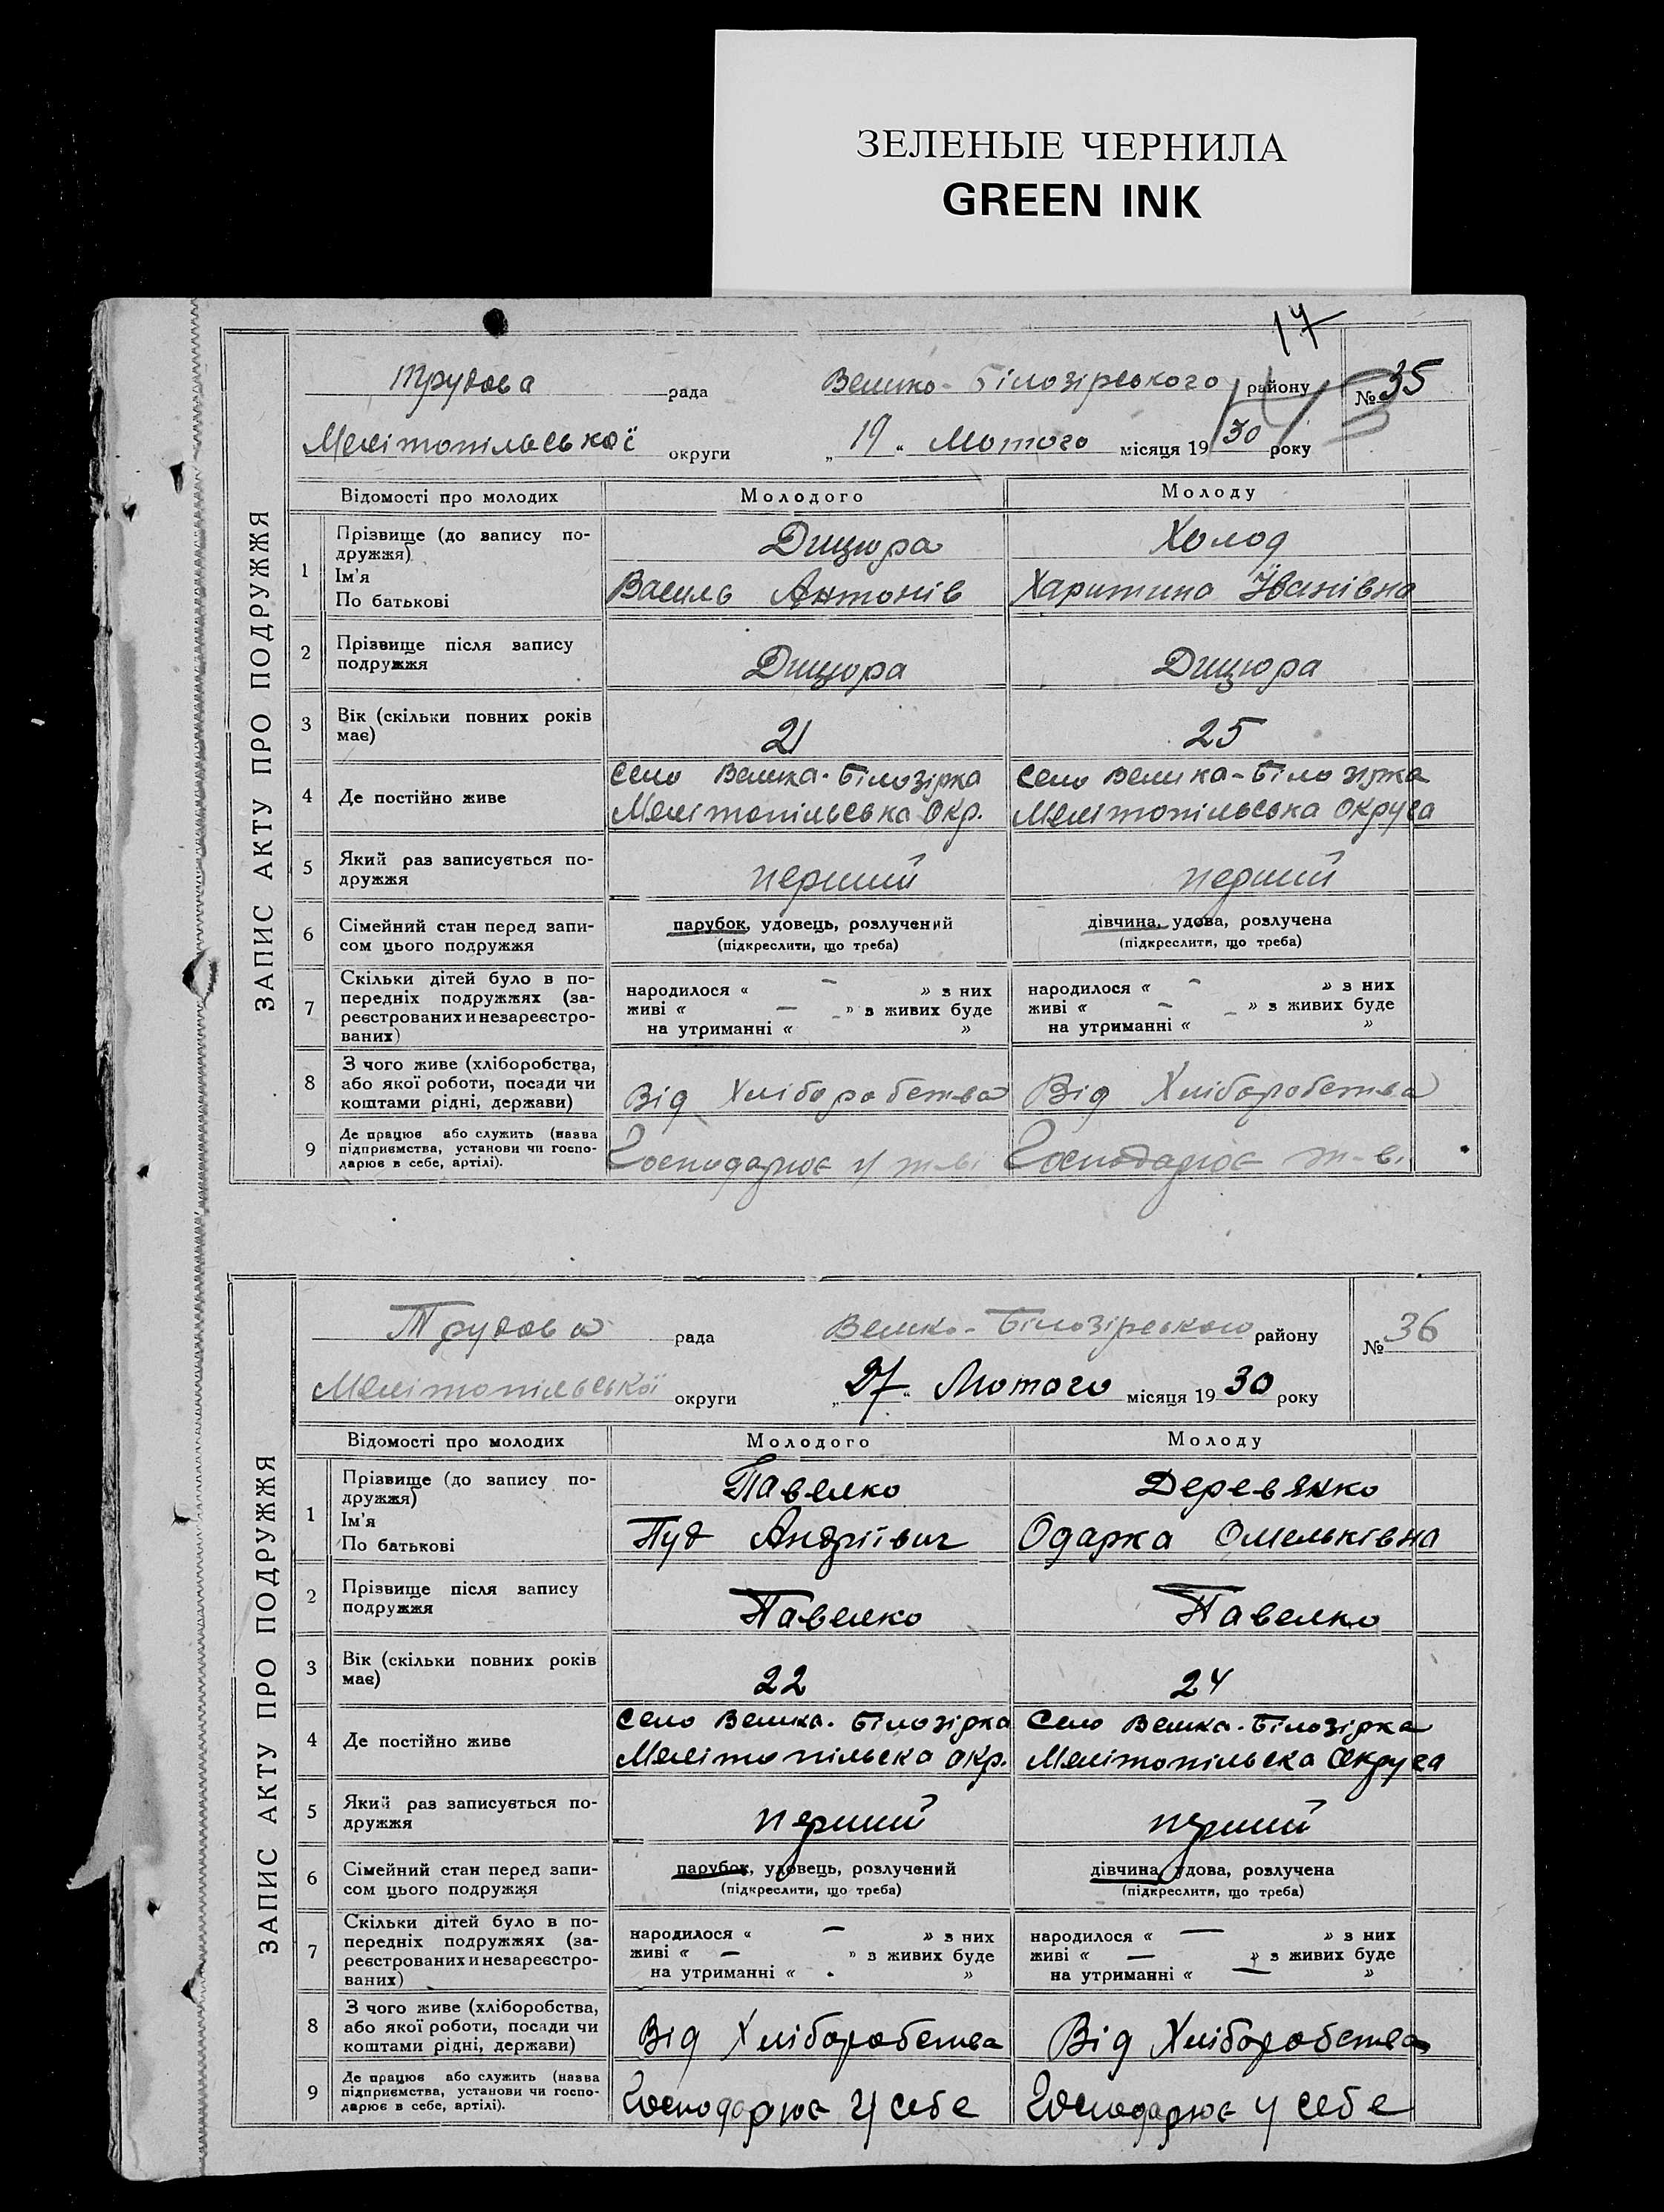 ЗЕЛЕНЫЕ ЧЕРНИЛА
GREEN INK
17
Трудова рада Велико-Білозірського району № 35
Мелітопільської округи „19“ Лютого місяця 1930 року
ЗАПИС АКТУ ПРО ПОДРУЖЖЯ
Відомості про молодих Молодого Молоду
1 Прізвище (до запису подружжя) Дицюра Холод
Ім'я
По батькові Василь Антонів Харитина Іванівна
2 Прізвище після запису подружжя Дицюра Дицюра
3 Вік (скільки повних років має) 21 25
4 Де постійно живе Село Велика-Білозірка Село Велика-Білозірка
Мелітопільська Окр. Мелітопільська Округа
5 Який раз записується подружжя перший перший
6 Сімейний стан перед записом цього подружжя парубок, удовець, розлучений дівчина, удова, розлучена
(підкреслити, що треба) (підкреслити, що треба)
7 Скільки дітей було в попередніх подружжях (зареєстрованих и незареєстрованих)
народилося « — » з них народилося « - » з них
живі « — » з живих буде живі « — » з живих буде
на утриманні « » на утриманні « »
8 З чого живе (хліборобства, або якої роботи, посади чи коштами рідні, держави) Від Хліборобства Від Хліборобства
9 Де працює або служить (назва підприємства, установи чи господарює в себе, артілі). Господарює у т-ві Господарює т-ві
Трудова рада Велико-Білозірського району № 36
Мелітопільської округи „27“ Лютого місяця 1930 року
ЗАПИС АКТУ ПРО ПОДРУЖЖЯ
Відомості про молодих Молодого Молоду
1 Прізвище (до запису подружжя) Павелко Деревянко
Ім'я
По батькові Пуд Андріївич Одарка Омельківна
2 Прізвище після запису подружжя Павелко Павелко
3 Вік (скільки повних років має) 22 24
4 Де постійно живе Село Велика-Білозірка Село Велика-Білозірка
Мелітопільска окр. Мелітопільска Округа
5 Який раз записується подружжя перший перший
6 Сімейний стан перед записом цього подружжя парубок, удовець, розлучений дівчина, удова, розлучена
(підкреслити, що треба) (підкреслити, що треба)
7 Скільки дітей було в попередніх подружжях (зареєстрованих и незареєстрованих)
народилося « — » з них народилося « — » з них
живі « — » з живих буде живі « — » з живих буде
на утриманні « » на утриманні « — »
8 З чого живе (хліборобства, або якої роботи, посади чи коштами рідні, держави) Від Хліборобства Від Хліборобства
9 Де працює або служить (назва підприємства, установи чи господарює в себе, артілі). Господарює у себе Господарює у себе